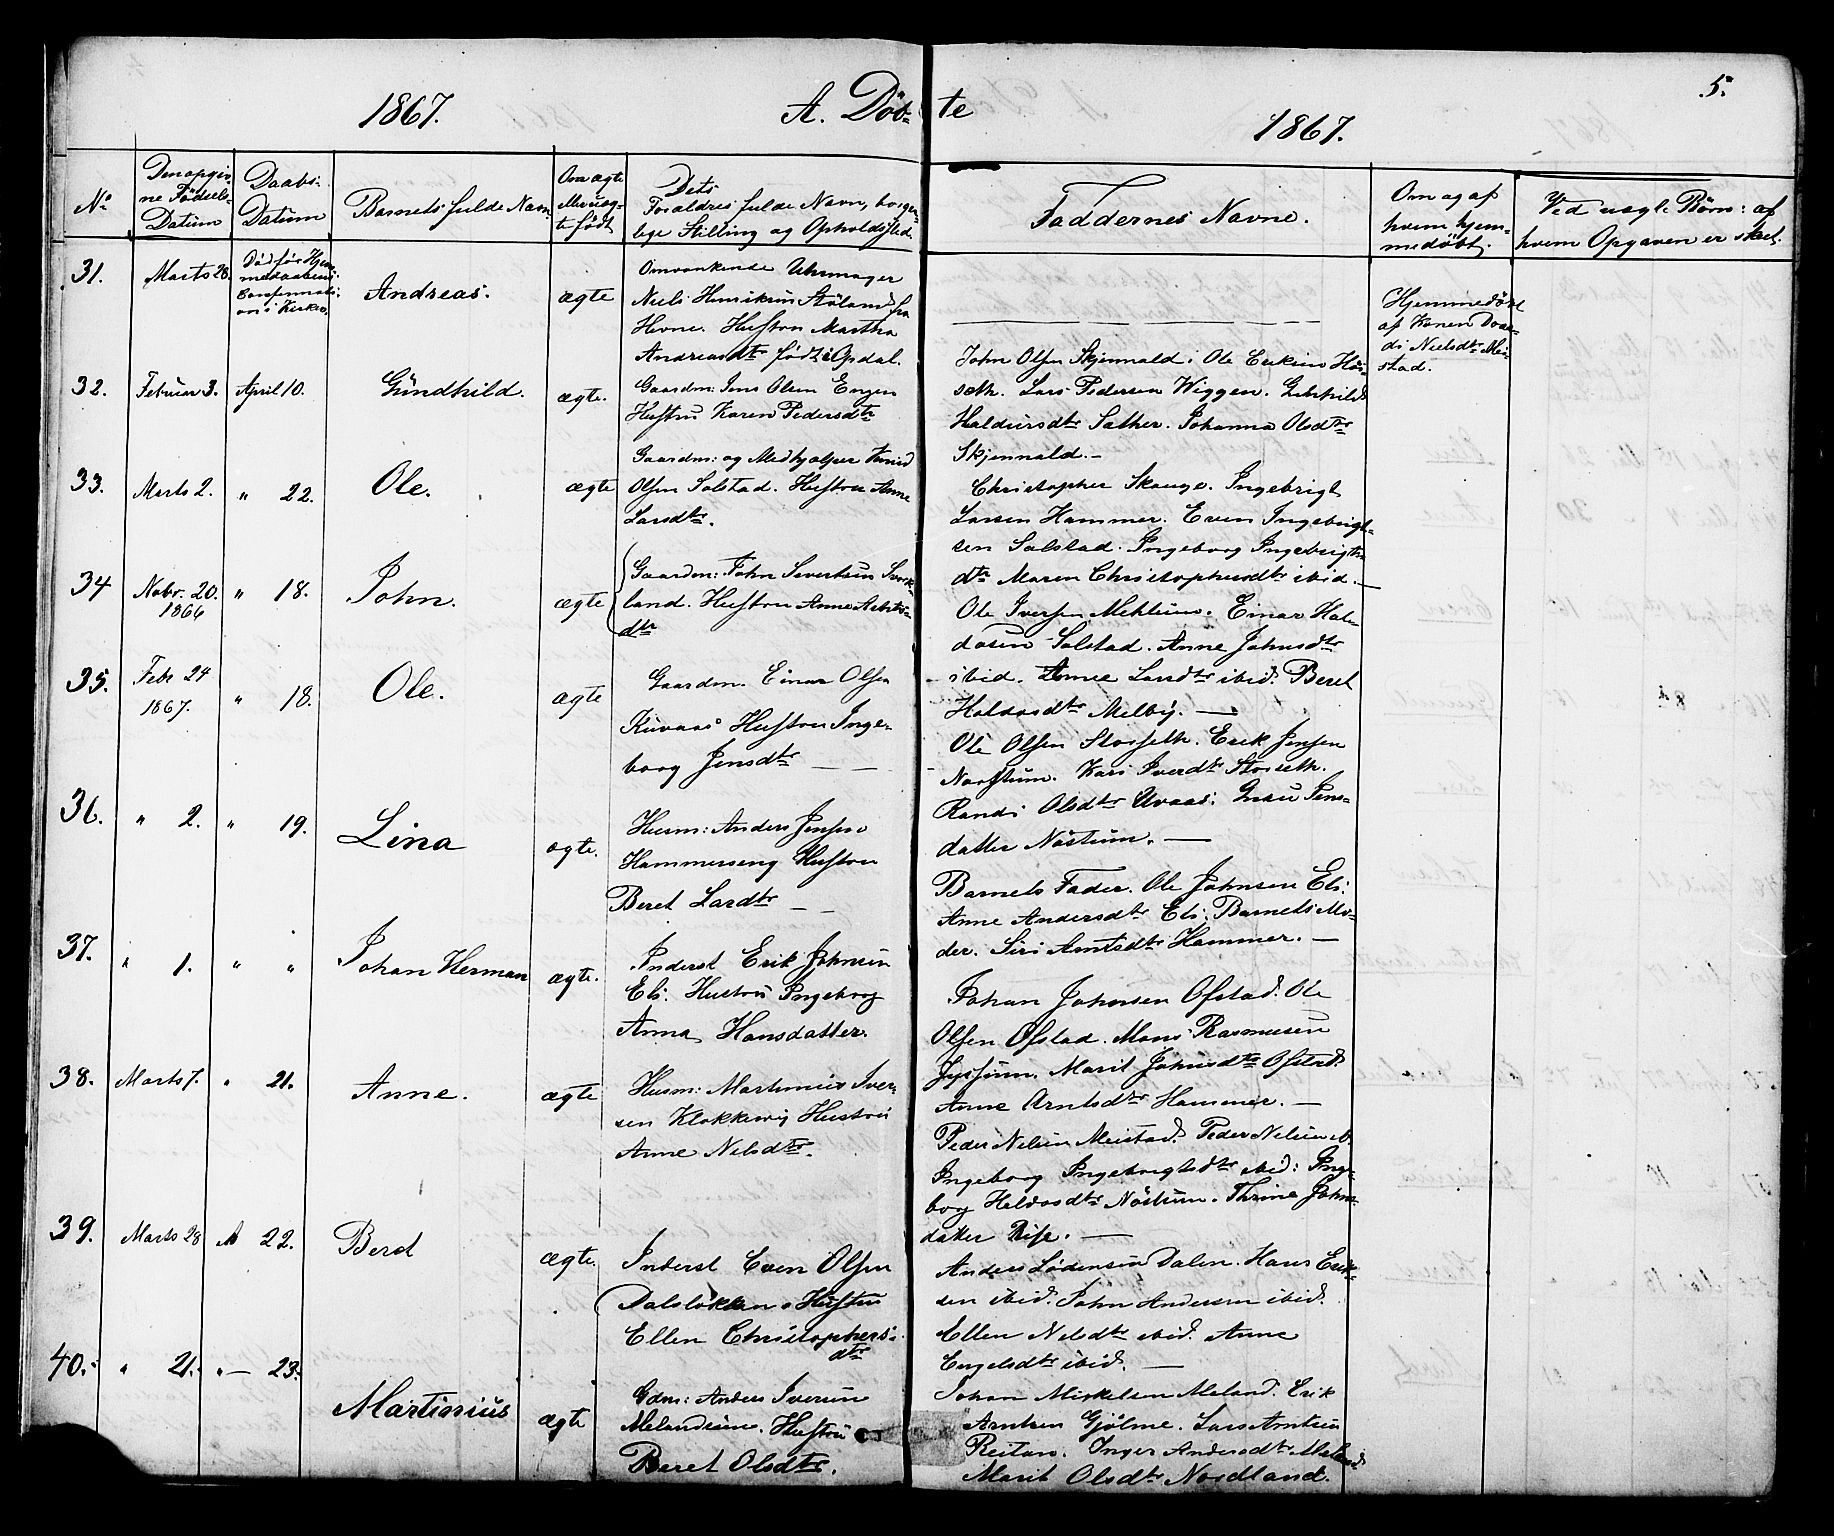 5.
1867. A. Döb- te 1867.
No
Den opgiv-
ne Födsels-
Datum
Daabs-
Datum
Barnets fulde Navn
Om ægte
eller uæg-
te født
Dets
Forældres fulde Navn, borger-
lige Stilling og Opholdssted.
Faddernes Navne.
Om og af
hvem hjem-
medöbt.
Ved uægte Börn: af
hvem Opgaven er skeet.
31.
Marts 28.
Död för Hjem-
medaabens
Confirmati-
on i Kirken.
Andreas.
ægte
Omvankende Uhrmager
Niels Henriksen Stöland fra
Hevne. Hustru Martha
Andreasdtr födt i Opdal.
Hjemmedöbt
af Konen Dor-
di Nielsdtr Mei-
stad.
32.
Februar 3.
April 10.
Gundhild.
ægte.
Gaardm: Jens Olsen Engen
Hustru Karen Pedersdtr
John Olsen Skjennald. Ole Eriksen
Lars Pedersen Wiggen.
Haldorsdtr Sæther. Johanna Olsdtr
Skjennald.
33.
Marts 2.
" 22.
Ole.
ægte
Gaardm: og Medhjælper
Olsen Solstad. Hustru Anne
Larsdtr.
Christopher Skauge. Ingebrigt
Larsen Hammer. Even Ingebrigt-
sen Solstad. Ingeborg Ingebrigts
dtr Maren Christophersdtr ibid.
34
Nobr. 20.
1866
" 18.
John.
ægte
Gaardm: John Sivertsen Svork-
land. Hustru Anne
dtr
Ole Iversen Mehlum. Einar Hal-
dosen Solstad. Anne Johnsdtr
ibid. Anne Larsdtr ibid. Beret
Haldosdtr Melby.
35.
Febr 24
1867.
" 18.
Ole.
ægte
Gaardm. Einar Olsen
Kuvaas Hustru Inge-
borg Jensdtr
Ole Olsen Storseth. Erik Jensen
Norstum. Kari Iverdtr Storseth.
Randi Olsdtr Uvaas. Jens-
datter Nöstum.
36.
" 2.
" 19.
Lina
ægte.
Husm: Anders Jensen
Hammerseng Hustru
Beret Larsdtr
Barnets Fader. Ole Johnsen Eli.
Anne Andersdtr Eli. Barnets Mo-
der. Siri Arntsdtr Hammer.
37.
" 1.
" "
Johan Herman
ægte.
Inderst Erik Johnsen
Eli. Hustru Ingeborg
Anna Hansdatter.
Johan Johnsen Ofstad. Ole
Olsen Ofstad. Mons Rasmusen
Marit Johnsdtr Ofstad.
Anne Arntsdtr Hammer.
38.
Marts 7.
" 21.
Anne.
ægte
Husm: Martinus Iver-
sen Klokkervig Hustru
Anne Nelsdtr.
Peder Nelsen Meistad. Peder Nelsen
Ingeborg Ingebrigtsdtr ibid: Inge-
borg Haldosdtr Nöstum. Johns-
datter
39.
Marts 28
A 22.
Berd
ægte.
Inderst Even Olsen
Dalslökken. Hustru
Ellen Christophers-
dtr
Anders Dalen. Hans Erik-
sen ibid. John Andersen ibid.
Ellen Nelsdtr ibid. Anne
Engelsdtr ibid.
40.
" 21.
" 23.
Martinius
ægte
Gdm: Anders Iversen
Melandsöien. Hustru
Beret Olsdtr.
Johan Mikkelsen Meland. Erik
Arntsen Gjölme. Lars Arntsen
Reitan. Inger Andersdtr Meland
Marit Olsdtr Nordland.